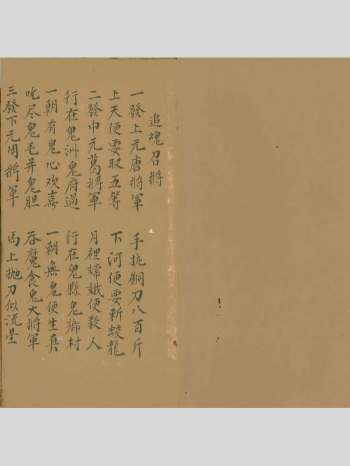 追魂召將
一發上元唐將軍 手挑銅刀八百斤
上天便要取五等 下河便要斬蛟龍
二發中元葛將軍 月裡嫦娥便殺人
行在鬼洲鬼府過 行在鬼縣鬼鄉村
一朝有鬼心欢喜 一朝無鬼便生真
吪尽鬼毛并鬼胆 吞魔食鬼大將軍
三發下元周將軍 馬上抛刀似流星